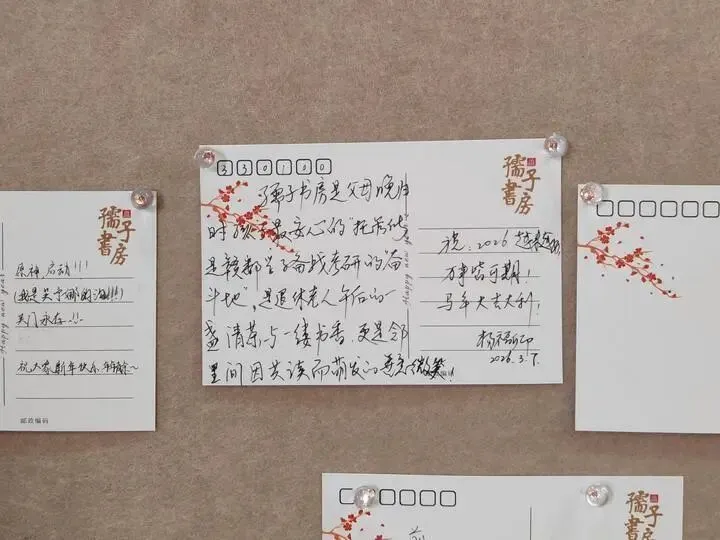 孺子書房
Happy new year
原神,启动!!!
天门永存!!!
祝大家新年快乐
邮政编码
330100
孺子書房
孺子书房是父母晚归
时孩子最安心的"托
是赣鄱学子备战考研的"奋
斗地",是退休老人午后的一
盏清茶与一缕书香,更是邻
里间因共读而萌发的善意微笑!
Happy new year
祝:2026
万事皆可期!
马年大吉大利!
2026.3.7.
孺子書房